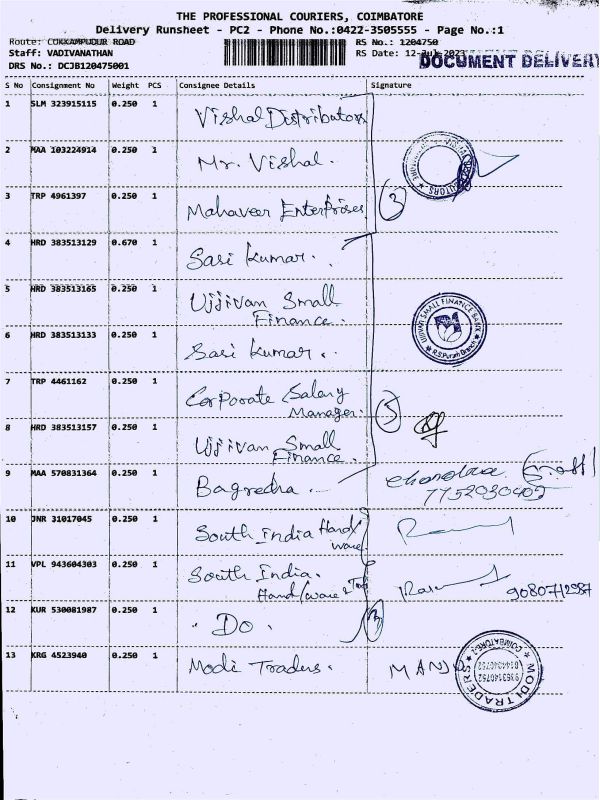 THE PROFESSIONAL COURIERS, COIMBATORE
Delivery Runsheet - PC2 - Phone No.:0422-3505555 - Page No.:1
Route: COKKAMPUDUR ROAD RS No.: 1204750
Staff: VADIVANATHAN RS Date: 12-Jul-2023
DOCUMENT DELIVERY
DRS No.: DCJB120475001
S No Consignment No Weight PCS Consignee Details Signature
1 SLM 323915115 0.250 1 Vishal Distributors
2 MAA 103224914 0.250 1 Mr. Vishal.
3 TRP 4961397 0.250 1 Mahaveer Enterprises
3
4 HRD 383513129 0.670 1 Sasi Kumar.
5 HRD 383513165 0.250 1 Ujjivan Small
Finance.
UJJIVAN SMALL FINANCE BANK
R.S.Puram Branch
6 HRD 383513133 0.250 1 Sasi Kumar.
7 TRP 4461162 0.250 1 Corporate Salary
Manager.
5
8 HRD 383513157 0.250 1 Ujjivan Small
Finance.
9 MAA 570831364 0.250 1 Bagredha. Chandra
7752030409
10 JNR 31017045 0.250 1 South India Hard
ware
11 VPL 943604303 0.250 1 South India.
Hard/ware 9080712987
12 KUR 530081987 0.250 1 Do.
3
13 KRG 4523940 0.250 1 Modi Traders. MANJ
MODI TRADERS
COIMBATORE-1
9363140752